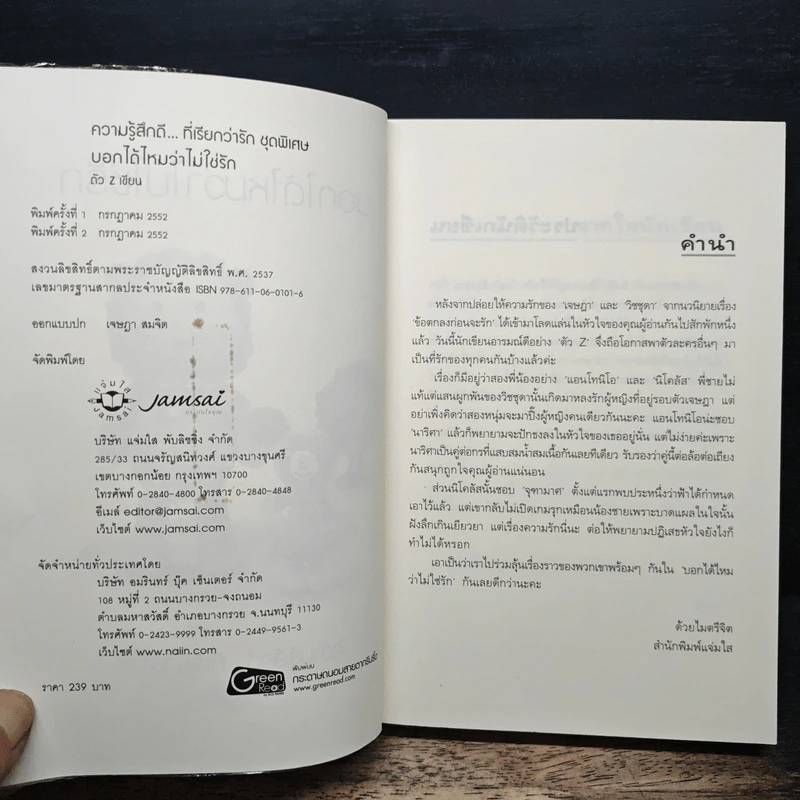 ความรู้สึกดี... ที่เรียกว่ารัก ชุดพิเศษ
บอกได้ไหมว่าไม่ใช่รัก
ตัว Z เขียน
พิมพ์ครั้งที่ 1 กรกฎาคม 2552
พิมพ์ครั้งที่ 2 กรกฎาคม 2552
สงวนลิขสิทธิ์ตามพระราชบัญญัติลิขสิทธิ์ พ.ศ. 2537
เลขมาตรฐานสากลประจำหนังสือ ISBN 978-611-06-0101-6
ออกแบบปก เจษฎา สมจิต
จัดพิมพ์โดย
แจ่มใส
Jamsai
jamsai
บริษัท แจ่มใส พับลิชชิ่ง จำกัด
285/33 ถนนจรัญสนิทวงศ์ แขวงบางขุนศรี
เขตบางกอกน้อย กรุงเทพฯ 10700
โทรศัพท์ 0-2840-4800 โทรสาร 0-2840-4848
อีเมล์ editor@jamsai.com
เว็บไซต์ www.jamsai.com
จัดจำหน่ายทั่วประเทศโดย
บริษัท อมรินทร์ บุ๊ค เซ็นเตอร์ จำกัด
108 หมู่ที่ 2 ถนนบางกรวย-จงถนอม
ตำบลมหาสวัสดิ์ อำเภอบางกรวย จ.นนทบุรี 11130
โทรศัพท์ 0-2423-9999 โทรสาร 0-2449-9561-3
เว็บไซต์ www.naiin.com
ราคา 239 บาท
Green Read
พิมพ์บน
กระดาษถนอมสายตากรีนรี้ด
www.greenread.com
คำนำ
หลังจากปล่อยให้ความรักของ 'เจษฎา' และ 'วิชชุดา' จากนวนิยายเรื่อง
'ข้อตกลงก่อนจะรัก' ได้เข้ามาโลดแล่นในหัวใจของคุณผู้อ่านกันไปสักพักหนึ่ง
แล้ว วันนี้นักเขียนอารมณ์ดีอย่าง 'ตัว Z' จึงถือโอกาสพาตัวละครอื่นๆ มา
เป็นที่รักของทุกคนกันบ้างแล้วค่ะ
เรื่องก็มีอยู่ว่าสองพี่น้องอย่าง 'แอนโทนิโอ' และ 'นิโคลัส' พี่ชายไม่
แท้แต่แสนผูกพันของวิชชุดานั้นเกิดมาหลงรักผู้หญิงที่อยู่รอบตัวเจษฎา แต่
อย่าเพิ่งคิดว่าสองหนุ่มจะมาปิ๊งผู้หญิงคนเดียวกันนะคะ แอนโทนิโอน่ะชอบ
'นาริศา' แล้วก็พยายามจะปักธงลงในหัวใจของเธออยู่นั่น แต่ไม่ง่ายค่ะเพราะ
นาริศาเป็นคู่ต่อกรที่แสบสมน้ำสมเนื้อกันเลยทีเดียว รับรองว่าคู่นี้ต่อล้อต่อเถียง
กันสนุกถูกใจคุณผู้อ่านแน่นอน
ส่วนนิโคลัสนั้นชอบ 'จุฑามาศ' ตั้งแต่แรกพบประหนึ่งว่าฟ้าได้กำหนด
เอาไว้แล้ว แต่เขากลับไม่เปิดเกมรุกเหมือนน้องชายเพราะบาดแผลในใจนั้น
ฝังลึกเกินเยียวยา แต่เรื่องความรักนี่นะ ต่อให้พยายามปฏิเสธหัวใจยังไงก็
ทำไม่ได้หรอก
เอาเป็นว่าเราไปร่วมลุ้นเรื่องราวของพวกเขาพร้อมๆ กันใน 'บอกได้ไหม
ว่าไม่ใช่รัก' กันเลยดีกว่านะคะ
ด้วยไมตรีจิต
สำนักพิมพ์แจ่มใส